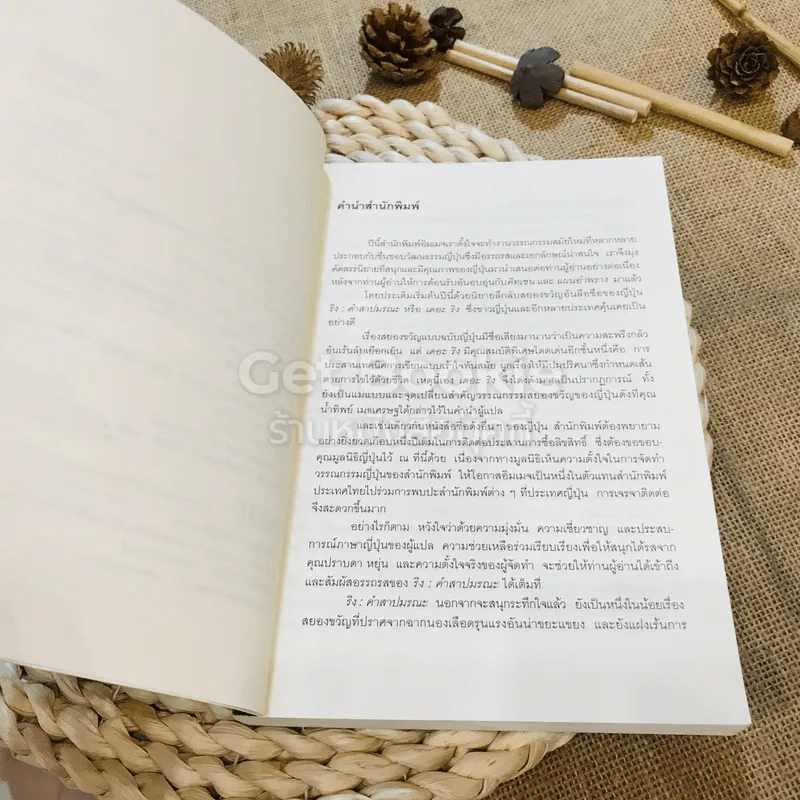 คำนำสำนักพิมพ์
ปีนี้สำนักพิมพ์อิมเมจเราตั้งใจจะทำงานวรรณกรรมสมัยใหม่ที่หลากหลาย
ประกอบกับชื่นชอบวัฒนธรรมญี่ปุ่นซึ่งมีอรรถรสและเอกลักษณ์น่าสนใจ เราจึงมุ่ง
คัดสรรนิยายที่สนุกและมีคุณภาพของญี่ปุ่นมานำเสนอต่อท่านผู้อ่านอย่างต่อเนื่อง
หลังจากท่านผู้อ่านให้การต้อนรับอันอบอุ่นกับคิตเชน และ แผนอำพราง มาแล้ว
โดยประเดิมเริ่มต้นปีนี้ด้วยนิยายลึกลับสยองขวัญอันลือชื่อของญี่ปุ่น
ริง : คำสาปมรณะ หรือ เดอะ ริง ซึ่งชาวญี่ปุ่นและอีกหลายประเทศคุ้นเคยเป็น
อย่างดี
เรื่องสยองขวัญแบบฉบับญี่ปุ่นมีชื่อเสียงมานานว่าเป็นความสะพรึงกลัว
อันเร้นลับเยือกเย็น แต่ เดอะ ริง มีคุณสมบัติพิเศษโดดเด่นอีกชั้นหนึ่งคือ การ
ประสานเทคนิคการเขียนแบบเร้าใจทันสมัย ผูกเรื่องให้มีปมปริศนาซึ่งกำหนดเส้น
ตายการไขไว้ด้วยชีวิต เหตุนี้เอง เดอะ ริง จึงโด่งดังมากเป็นปรากฏการณ์ ทั้ง
ยังเป็นแม่แบบและจุดเปลี่ยนสำคัญวรรณกรรมสยองขวัญของญี่ปุ่นดังที่คุณ
น้ำทิพย์ เมธเศรษฐ์ได้กล่าวไว้ในคำนำผู้แปล
และเช่นเดียวกับหนังสือชื่อดังอื่นๆ ของญี่ปุ่น สำนักพิมพ์ต้องพยายาม
อย่างยิ่งยวดเกือบหนึ่งปีเต็มในการติดต่อประสานการซื้อลิขสิทธิ์ ซึ่งต้องขอขอบ-
คุณมูลนิธิญี่ปุ่นไว้ ณ ที่นี้ด้วย เนื่องจากทางมูลนิธิเห็นความตั้งใจในการจัดทำ
วรรณกรรมญี่ปุ่นของสำนักพิมพ์ ให้โอกาสอิมเมจเป็นหนึ่งในตัวแทนสำนักพิมพ์
ประเทศไทยไปร่วมการพบปะสำนักพิมพ์ต่าง ๆ ที่ประเทศญี่ปุ่น การเจรจาติดต่อ
จึงสะดวกขึ้นมาก
อย่างไรก็ตาม หวังใจว่าด้วยความมุ่งมั่น ความเชี่ยวชาญ และประสบ-
การณ์ภาษาญี่ปุ่นของผู้แปล ความช่วยเหลือร่วมเรียบเรียงเพื่อให้สนุกได้รสจาก
คุณปราบดา หยุ่น และความตั้งใจจริงของผู้จัดทำ จะช่วยให้ท่านผู้อ่านได้เข้าถึง
และสัมผัสอรรถรสของ ริง : คำสาปมรณะ ได้เต็มที่
ริง : คำสาปมรณะ นอกจากจะสนุกระทึกใจแล้ว ยังเป็นหนึ่งในน้อยเรื่อง
สยองขวัญที่ปราศจากฉากนองเลือดรุนแรงอันน่าขยะแขยง และยังแฝงเร้นการ